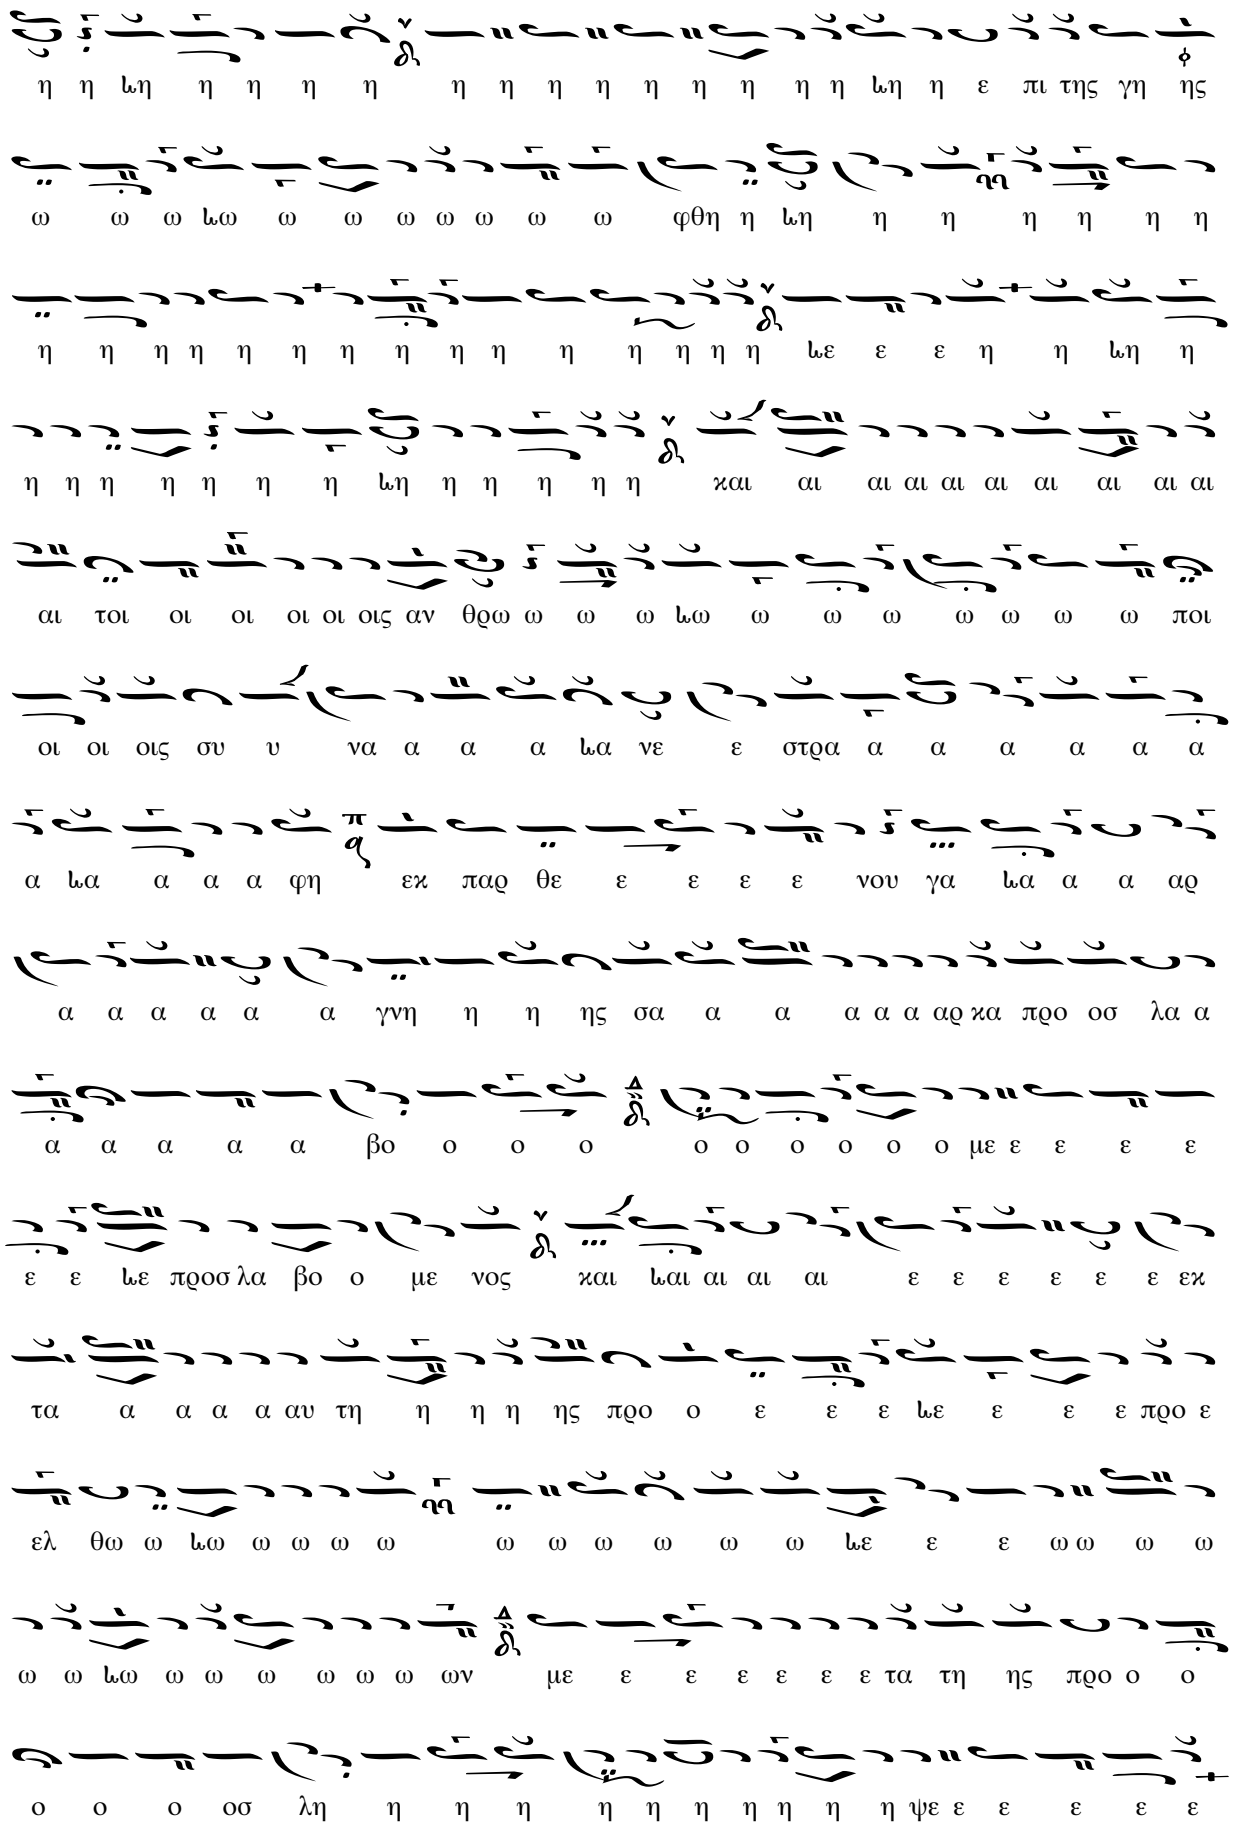 η η ͷη η η η η η η η η η η η η η ͷη η ε πι της γη ης
ω ω ω ͷω ω ω ω ω ω ω ω φθη η ͷη η η η η η η
η η η η η η η η η η η η η η η ͷε ε ε η η ͷη η
η η η η η η η ͷη η η η η η και αι αι αι αι αι αι αι αι αι
αι τοι οι οι οι οι οις αν θρω ω ω ω ͷω ω ω ω ω ω ω ω ποι
οι οι οις συ υ να α α α ͷα νε ε στρα α α α α α α
α ͷα α α α φη εκ παρ θε ε ε ε ε νου γα ͷα α α αρ
α α α α α α γνη η η ης σα α α α α α αρ κα προ οσ λα α
α α α α α βο ο ο ο ο ο ο ο ο ο με ε ε ε ε
ε ε ͷε προσ λα βο ο με νος και ͷαι αι αι αι ε ε ε ε ε ε εκ
τα α α α α αυ τη η η η ης προ ο ε ε ε ͷε ε ε ε προ ε
ελ θω ω ͷω ω ω ω ω ω ω ω ω ω ω ͷε ε ε ω ω ω ω
ω ω ͷω ω ω ω ω ω ω ων με ε ε ε ε ε ε τα τη ης προ ο ο
ο ο ο οσ λη η η η η η η η η η η ψε ε ε ε ε ε